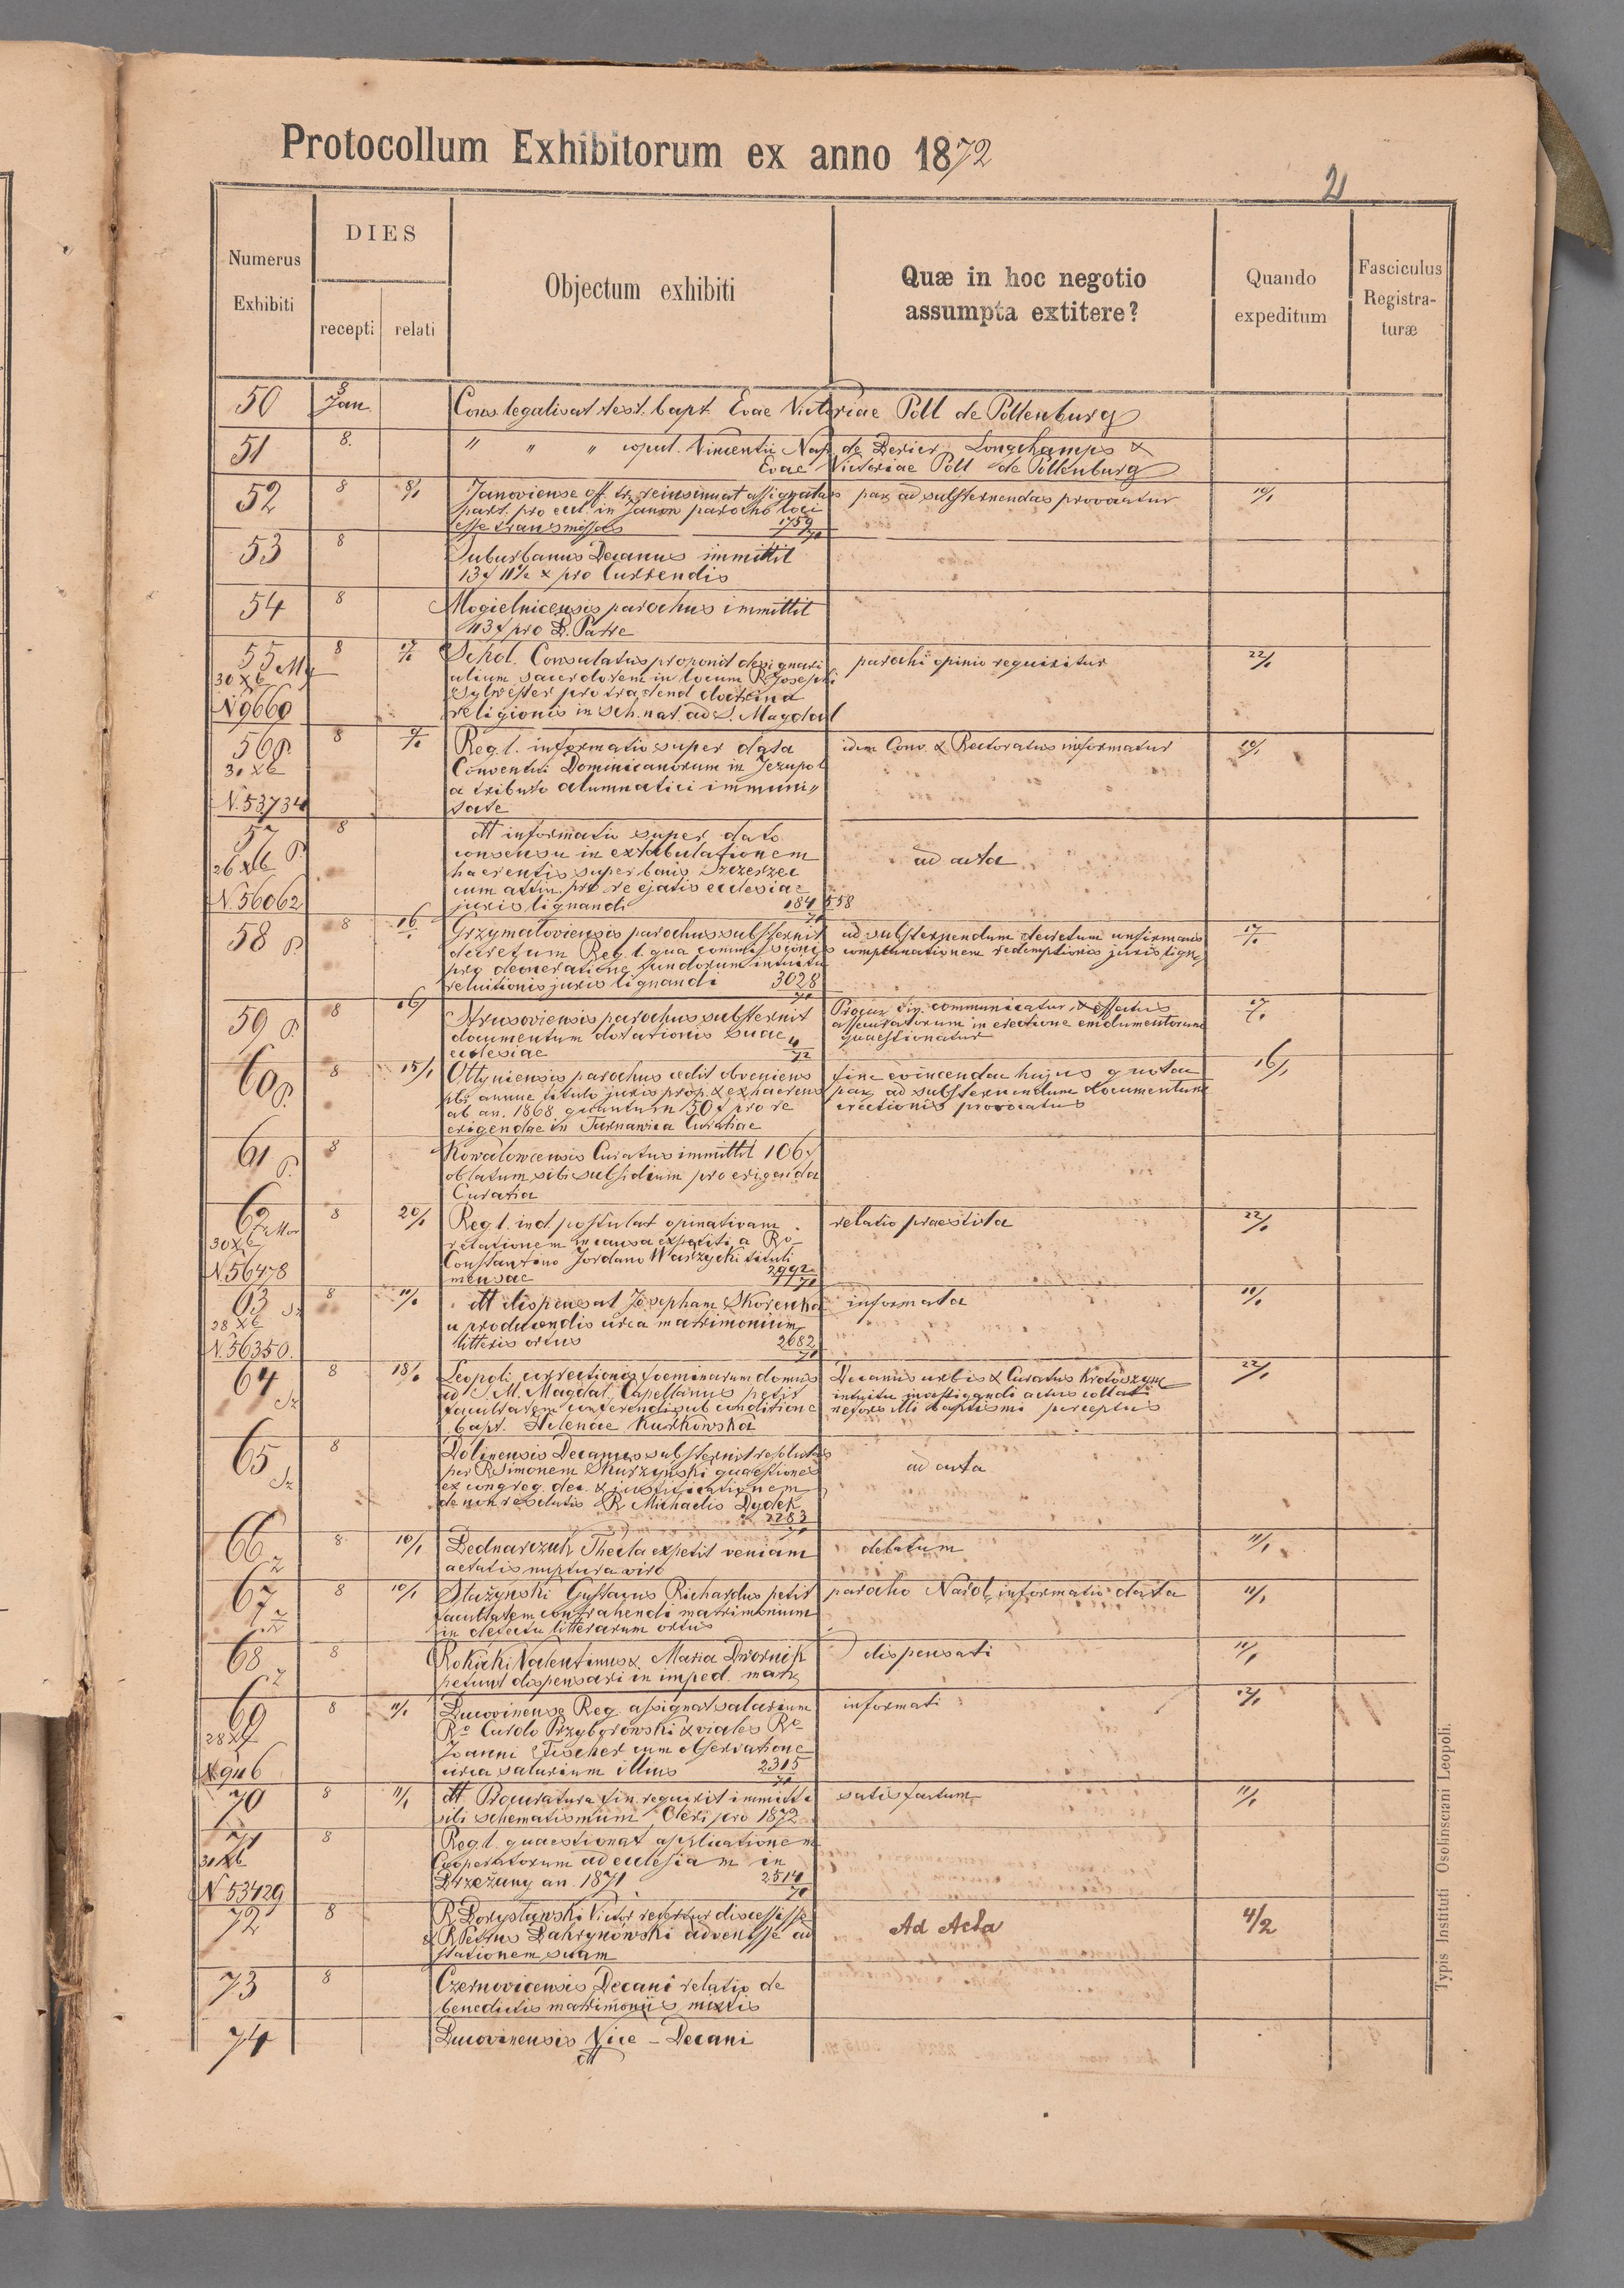 Protocollum Exhibitorum ex anno 1872
2
Numerus Exhibiti
DIES
recepti
relati
Objectum exhibiti
Quæ in hoc negotio assumpta extitere?
Quando expeditum
Fasciculus Registraturæ
50 8 Jan. Cons. legalisat test. bapt. Evae Victoriae Poll de Pollenburg
51 8. " " " copul. Vincentii Nap. de Derier Longchamps &
Evae Victoriae Poll de Pollenburg
52 8 8/1 Janoviense off. reinsinuat assignatas par. ad substernendas provocatur 10/1
part. pro eccl. in Janow parocho loci
esse transmissas 1759/71
53 8 Suburbanus Decanus immittit
13 f 11½ x pro Currendis
54 8 Mogielnicensis parochus immittit
113 f pro S. Patre
55 8 Schol. Consulatus proponit designari parochi opinio requiritur 22/1
30 XII alium sacerdotem in locum R. Josephi
N 9660 Sylvester pro tradend doctrina
religionis in sch. nat. ad S. Magdal
56 P. 8 9/1 Reg. l. informatio super data idem Conv. & Rectoratus informatur 10/1
30 XII Conventui Dominicanorum in Jezupol
N. 53734 a tributo alumnatici immuni"
tate
57 P. 8 dtt informatio super dato
26 XII consensu in extabulationem ad acta
haerentis super bonis Szczerzec
N. 56062 cum attin. pro re ejatis ecclesiae
juris lignandi 184 558/71
58 P. 8 16/1 Grzymaloviensis parochus substernit ad substernendum decretum confirmans 17/1
decretum Reg. l. qua commissionis complanationem redemptionis juris lign.
pro deoneratione fundorum intuitu
reluitionis juris lignandi 3028/71
59 P. 8 16/1 Strusoviensis parochus substernit Procur. fin. communicatur, & effectus 17/1
documentum dotationis suae assecuratorum in erectione emolumentorum
ecclesiae 4/72 quaestionatur
60 P. 8 15/1 Ottyniensis parochus cedit obveniens fine evincendae hujus quotae 16/1
sibi annue titulo juris prop. & ex haerens par. ad substernendum documentum
ab an. 1868 quantum 50 f pro re erectionis provocatus
erigendae in Tarnawica Curatiae
61 P. 8 Kowalowcensis Curatus immittit 106 f
oblatum sibi subsidium pro erigenda
Curatia
62 8 20/1 Reg. l. ind. postulat opinativam relatio praestita 22/1
30 XII relationem in causa expetiti a Ro
N. 56478 Constantino Jordano Warzycki tituli
mensae 2992/71
63 Sz 8 11/1 dtt dispensat Josepham Skorenka informata 11/1
28 XII a producendis circa matrimonium
N. 56350. litteris ortus 2682/71
64 Sz 8 18/1 Leopoli correctionis foeminarum domus Decanus urbis & Curatus Krotoszyne 22/1
ad S. M. Magdal. Capellanus petit intuitu investigandi actus collati
facultatem conferendi sub conditione nefors illi baptismi perceptus
bapt. Helenae Kurkowska
65 Sz 8 Dolinensis Decanus substernit resolutas
per R. Simonem Skurzynski quaestiones ad acta
ex congreg. dec. & justificationem
de non resolutis R. Michaelis Dydek
2283/71
66 Z 8 10/1 Bednarczuk Thecla expetit veniam delatum 11/1
aetatis nuptura viro
67 8 10/1 Stazynski Gustavus Richardus petit parocho Narol. informatio data 11/1
facultatem contrahendi matrimonium
in defectu litterarum ortus
68 Z 8 Rokicki Valentinus & Maria Dwornik dispensati 11/1
petunt dispensari in imped. matr.
69 8 11/1 Bucovinense Reg. assignat salarium informati 12/1
28 XII Ro Carolo Przyborowski & viales Ro
N 9116 Joanni Fischer cum observatione
circa salarium illius 2315/71
70 8 11/1 dtt Procuratura fin. requirit immitti satisfactum 11/1
sibi schematismum Cleri pro 1872
71 8 Reg. l. quaestionat applicationem
30 XII Cooperatorum ad ecclesiam in
N 53429 Brzeżany an. 1871 2514/71
72 8 R. Borysławski Victor refertur discessisse Ad Acta 4/2
& R. Petrus Zahrynowski advenisse ad
stationem suam
73 8 Czernovicensis Decani relatio de
benedictis matrimoniis mixtis
74 Bucovinensis Vice-Decani
dtt
Typis Instituti Osoliniscianì Leopoli.